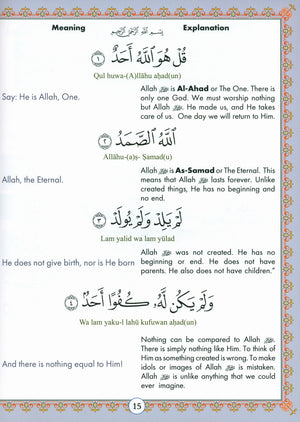 Meaning Explanation
بِسْمِ اللَّهِ الرَّحْمَٰنِ الرَّحِيمِ
قُلْ هُوَ ٱللَّهُ أَحَدٌ ١
Qul huwa-(A)llāhu aḥad(un)
Say: He is Allah, One.
Allah ﷻ is Al-Ahad or The One. There is
only one God. We must worship nothing
but Allah ﷻ. He made us, and He takes
care of us. One day we will return to Him.
ٱللَّهُ ٱلصَّمَدُ ٢
Allāhu-(a)ṣ- Ṣamad(u)
Allah, the Eternal.
Allah ﷻ is As-Samad or The Eternal. This
means that Allah ﷻ lasts forever. Unlike
created things, He has no beginning and
no end.
لَمْ يَلِدْ وَلَمْ يُولَدْ ٣
Lam yalid wa lam yūlad
He does not give birth, nor is He born
Allah ﷻ was not created. He has no
beginning or end. He does not have
parents. He also does not have children."
وَلَمْ يَكُن لَّهُۥ كُفُوًا أَحَدٌۢ ٤
Wa lam yaku-l lahū kufuwan aḥad(un)
And there is nothing equal to Him!
Nothing can be compared to Allah ﷻ.
There is simply nothing like Him. To think of
Him as something created is wrong. To make
idols or images of Allah ﷻ is mistaken.
Allah ﷻ is unlike anything that we could
ever imagine.
15